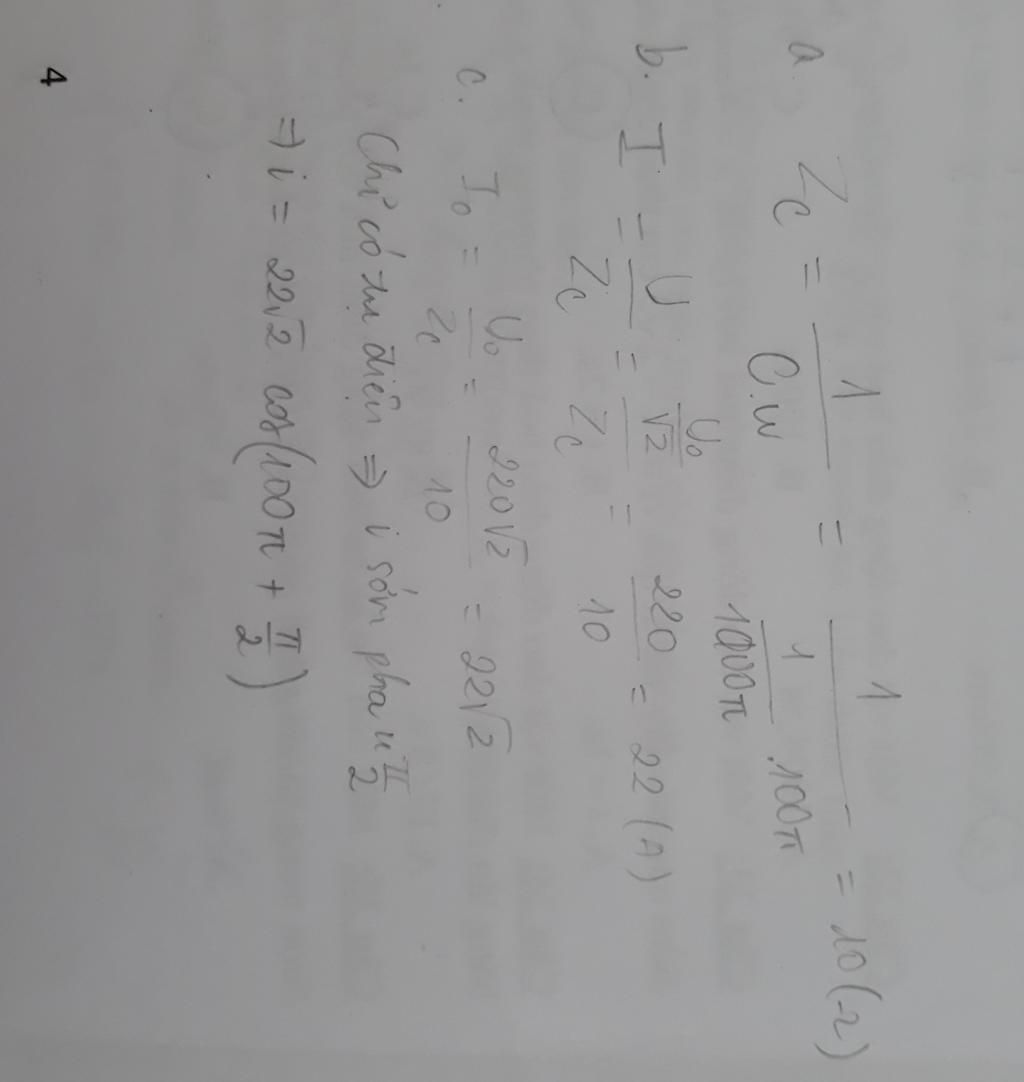 a. Z_C = 1/(C.ω) = 1/(1/(1000π) .100π) = 10 (Ω)
b. I = U/Z_C = (U₀/√2)/Z_C = 220/10 = 22 (A)
c. I₀ = U₀/Z_C = 220√2/10 = 22√2
Chỉ có tụ điện ⇒ i sớm pha u π/2
⇒ i = 22√2 cos(100π + π/2)
4